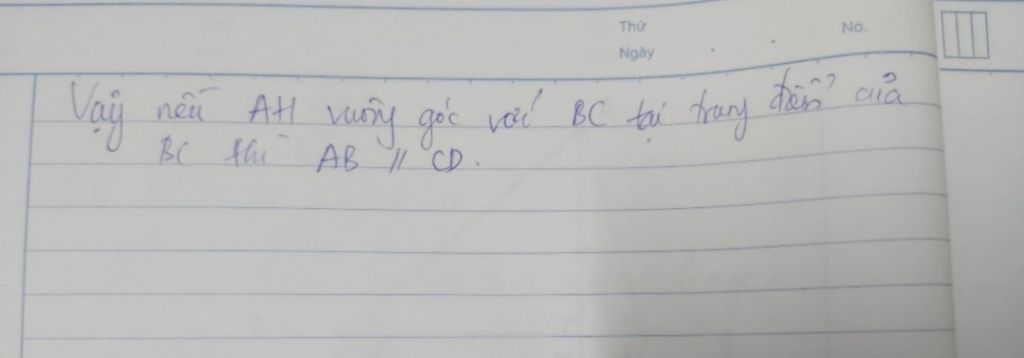 Thứ
No.
Ngày
Vậy nếu AH vuông góc với BC tại trung điểm của
BC thì AB // CD.